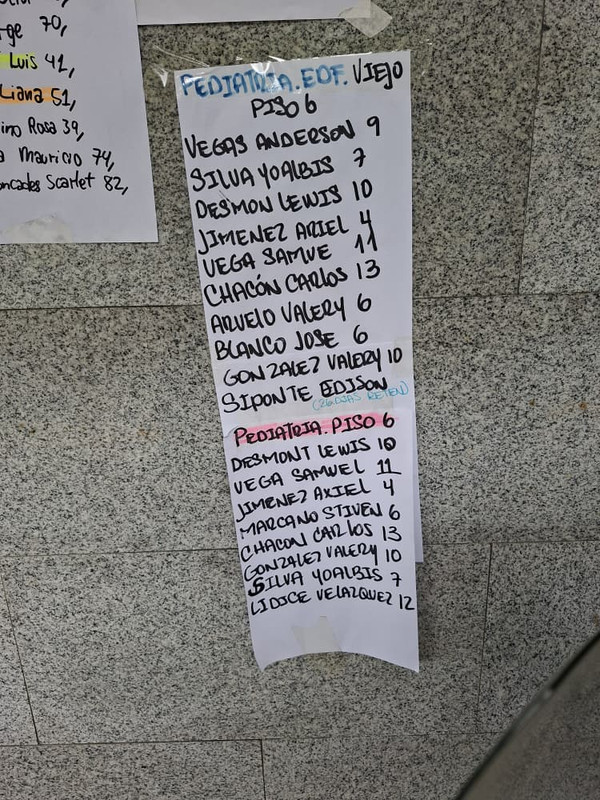 rge 70,
Luis 41,
Liana 51,
ino Rosa 39,
a Mauricio 74,
oncades Scarlet 82,
PEDIATRIA. EDF. VIEJO
PISO 6
VEGAS ANDERSON 9
SILVA YOALBIS 7
DESMON LEWIS 10
JIMENEZ ARIEL 4
VEGA SAMUE 11
CHACÓN CARLOS 13
ARVELO VALERY 6
BLANCO JOSE 6
GONZALEZ VALERY 10
SIPONTE EDISON
(26 DIAS RETEN)
PEDIATRIA. PISO 6
DESMONT LEWIS 10
VEGA SAMUEL 11
JIMENEZ AXIEL 4
MARCANO STIVEN 6
CHACON CARLOS 13
GONZALEZ VALERY 10
SILVA YOALBIS 7
LIDICE VELAZQUEZ 12